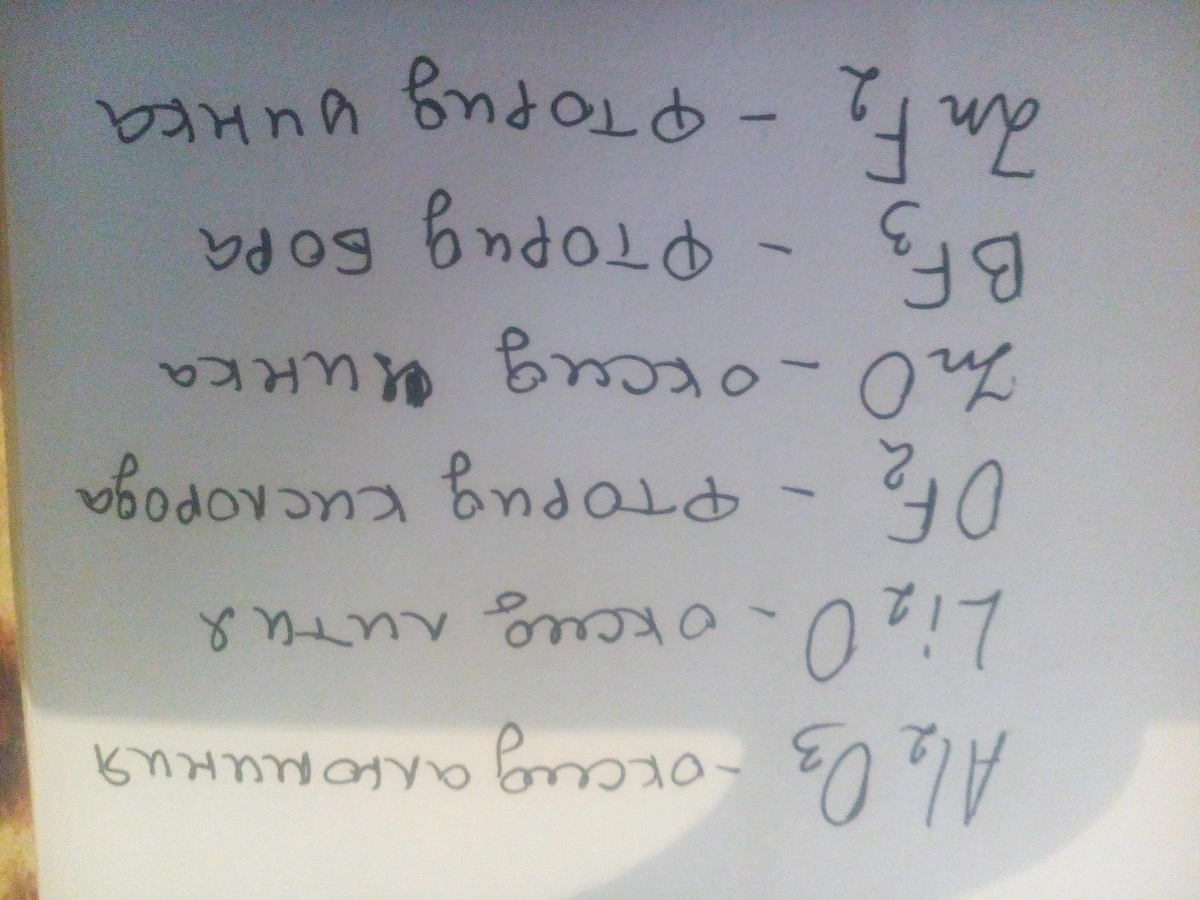 Al₂O₃ - оксид алюминия
Li₂O - оксид лития
OF₂ - фторид кислорода
ZnO - оксид цинка
BF₃ - фторид бора
ZnF₂ - фторид цинка